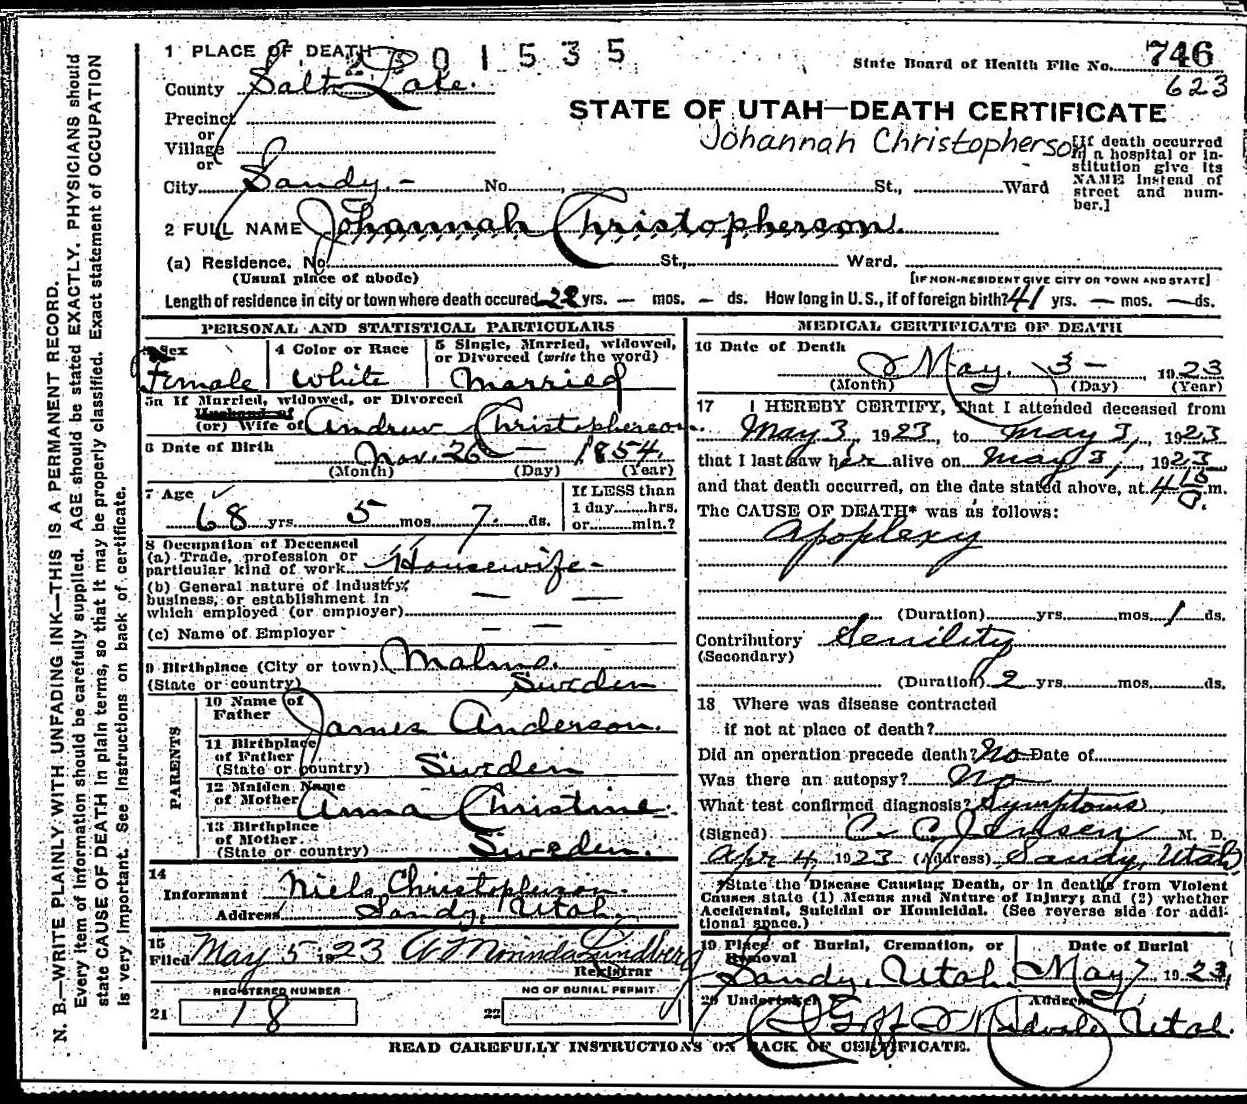 N. B.—WRITE PLAINLY WITH UNFADING INK—THIS IS A PERMANENT RECORD.
Every item of information should be carefully supplied. AGE should be stated EXACTLY. PHYSICIANS should
state CAUSE OF DEATH in plain terms, so that it may be properly classified. Exact statement of OCCUPATION
is very important. See instructions on back of certificate.
1 PLACE OF DEATH
01535
County Salt Lake.
Precinct
or
Village
or
City Sandy.- No. , St., Ward
State Board of Health File No. 746
623
STATE OF UTAH—DEATH CERTIFICATE
Johannah Christopherson
[If death occurred
in a hospital or in-
stitution give its
NAME instead of
street and num-
ber.]
2 FULL NAME Johannah Christopherson.
(a) Residence. No. St., Ward.
(Usual place of abode) [IF NON-RESIDENT GIVE CITY OR TOWN AND STATE]
Length of residence in city or town where death occured 22 yrs. — mos. — ds. How long in U.S., if of foreign birth? 41 yrs. — mos. — ds.
PERSONAL AND STATISTICAL PARTICULARS
3 Sex
Female
4 Color or Race
White
5 Single, Married, widowed,
or Divorced (write the word)
Married
5a If Married, widowed, or Divorced
Husband of
(or) Wife of Andrew Christopherson.
6 Date of Birth Nov. 26 — 1854.
(Month) (Day) (Year)
7 Age
68 yrs. 5 mos. 7. ds.
If LESS than
1 day......hrs.
or......min.?
8 Occupation of Deceased
(a) Trade, profession or
particular kind of work Housewife-
(b) General nature of Industry,
business, or establishment in
which employed (or employer) — —
(c) Name of Employer — —
9 Birthplace (City or town) Malmo.
(State or country) Sweden
PARENTS
10 Name of
Father James Anderson.
11 Birthplace
of Father
(State or country) Sweden
12 Maiden Name
of Mother Anna Christine.
13 Birthplace
of Mother
(State or country) Sweden.
14
Informant Niels Christopherson.
Address Sandy, Utah,
15
Filed May 5 1923 A Lundberg
Registrar
REGISTERED NUMBER
21 18
NO OF BURIAL PERMIT
22
MEDICAL CERTIFICATE OF DEATH
16 Date of Death
May. 3 — 1923
(Month) (Day) (Year)
17 I HEREBY CERTIFY, That I attended deceased from
May 3, 1923, to May 3, 1923
that I last saw her alive on May 3, 1923
and that death occurred, on the date stated above, at 4 15 P.m.
The CAUSE OF DEATH* was as follows:
Apoplexy
(Duration) yrs. mos. 1 ds.
Contributory Senility
(Secondary)
(Duration) 2 yrs. mos. ds.
18 Where was disease contracted
if not at place of death?
Did an operation precede death? No Date of
Was there an autopsy? No
What test confirmed diagnosis? Symptoms
(Signed) C. C. Jensen M. D.
Apr 4, 1923 (Address) Sandy, Utah
*State the Disease Causing Death, or in deaths from Violent
Causes state (1) Means and Nature of Injury; and (2) whether
Accidental, Suicidal or Homicidal. (See reverse side for addi-
tional space.)
19 Place of Burial, Cremation, or
Removal
Sandy, Utah.
Date of Burial
May 7 1923,
20 Undertaker Address
Goff Midvale Utah.
READ CAREFULLY INSTRUCTIONS ON BACK OF CERTIFICATE.